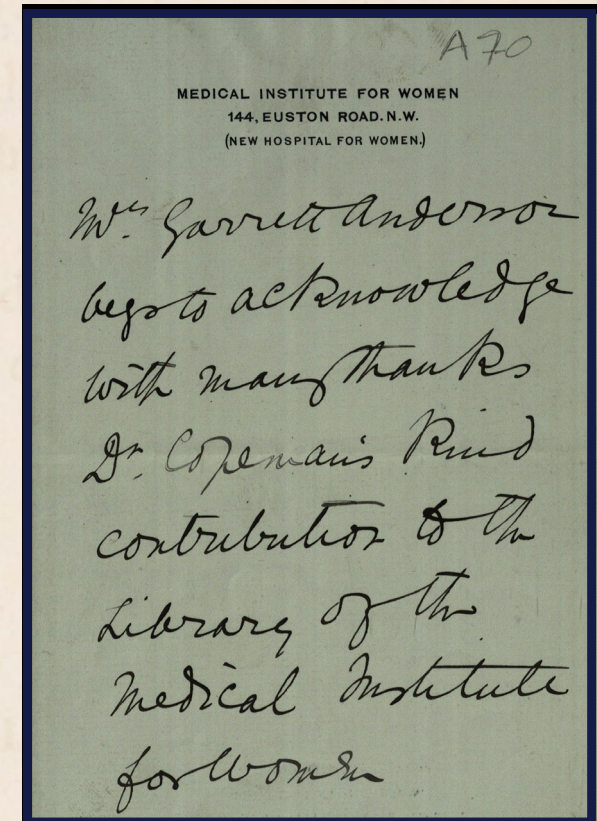 A70
MEDICAL INSTITUTE FOR WOMEN
144, EUSTON ROAD. N.W.
(NEW HOSPITAL FOR WOMEN.)
Mrs. Garrett Anderson
begs to acknowledge
with many thanks
Dr. Copeman's kind
contribution to the
Library of the
Medical Institute
for Women